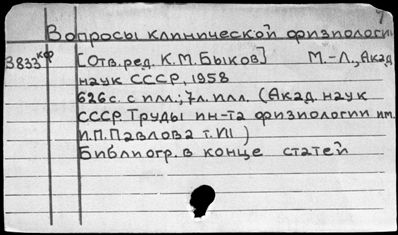 Вопросы клинической физиологии
3833кф [Отв. ред. К.М. Быков] М.-Л., Акад.
наук СССР, 1958
626с. с илл.; 7л. илл. (Акад. наук
СССР Труды ин-та физиологии им.
И.П. Павлова т. VII)
Библиогр. в конце статей